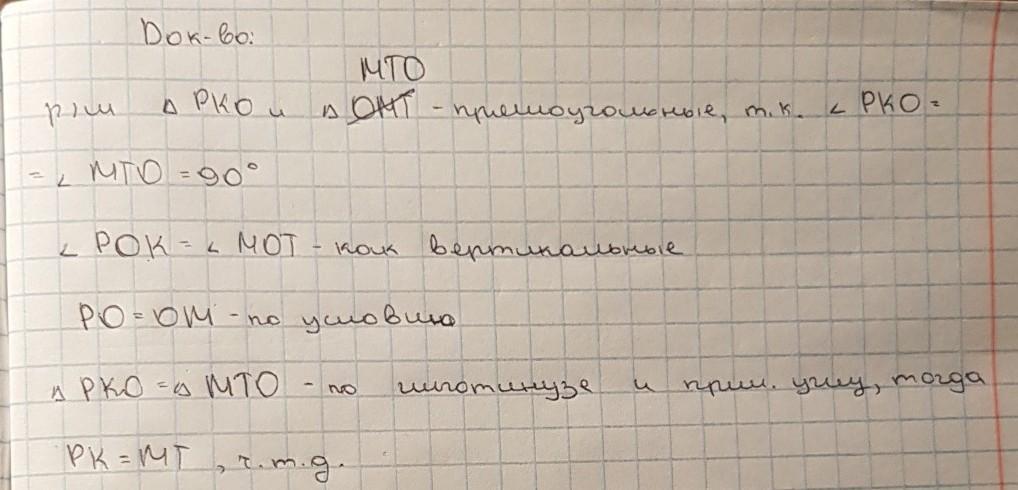 Док-во:
МТО
р/м △ PKO и △ ОМТ - прямоугольные, т.к. ∠ PKO =
= ∠ МТО = 90°
∠ POK = ∠ MOT - как вертикальные
PO = OM - по условию
△ PKO = △ MTO - по гипотинузе и прил. углу, тогда
PK = MT , ч.т.д.